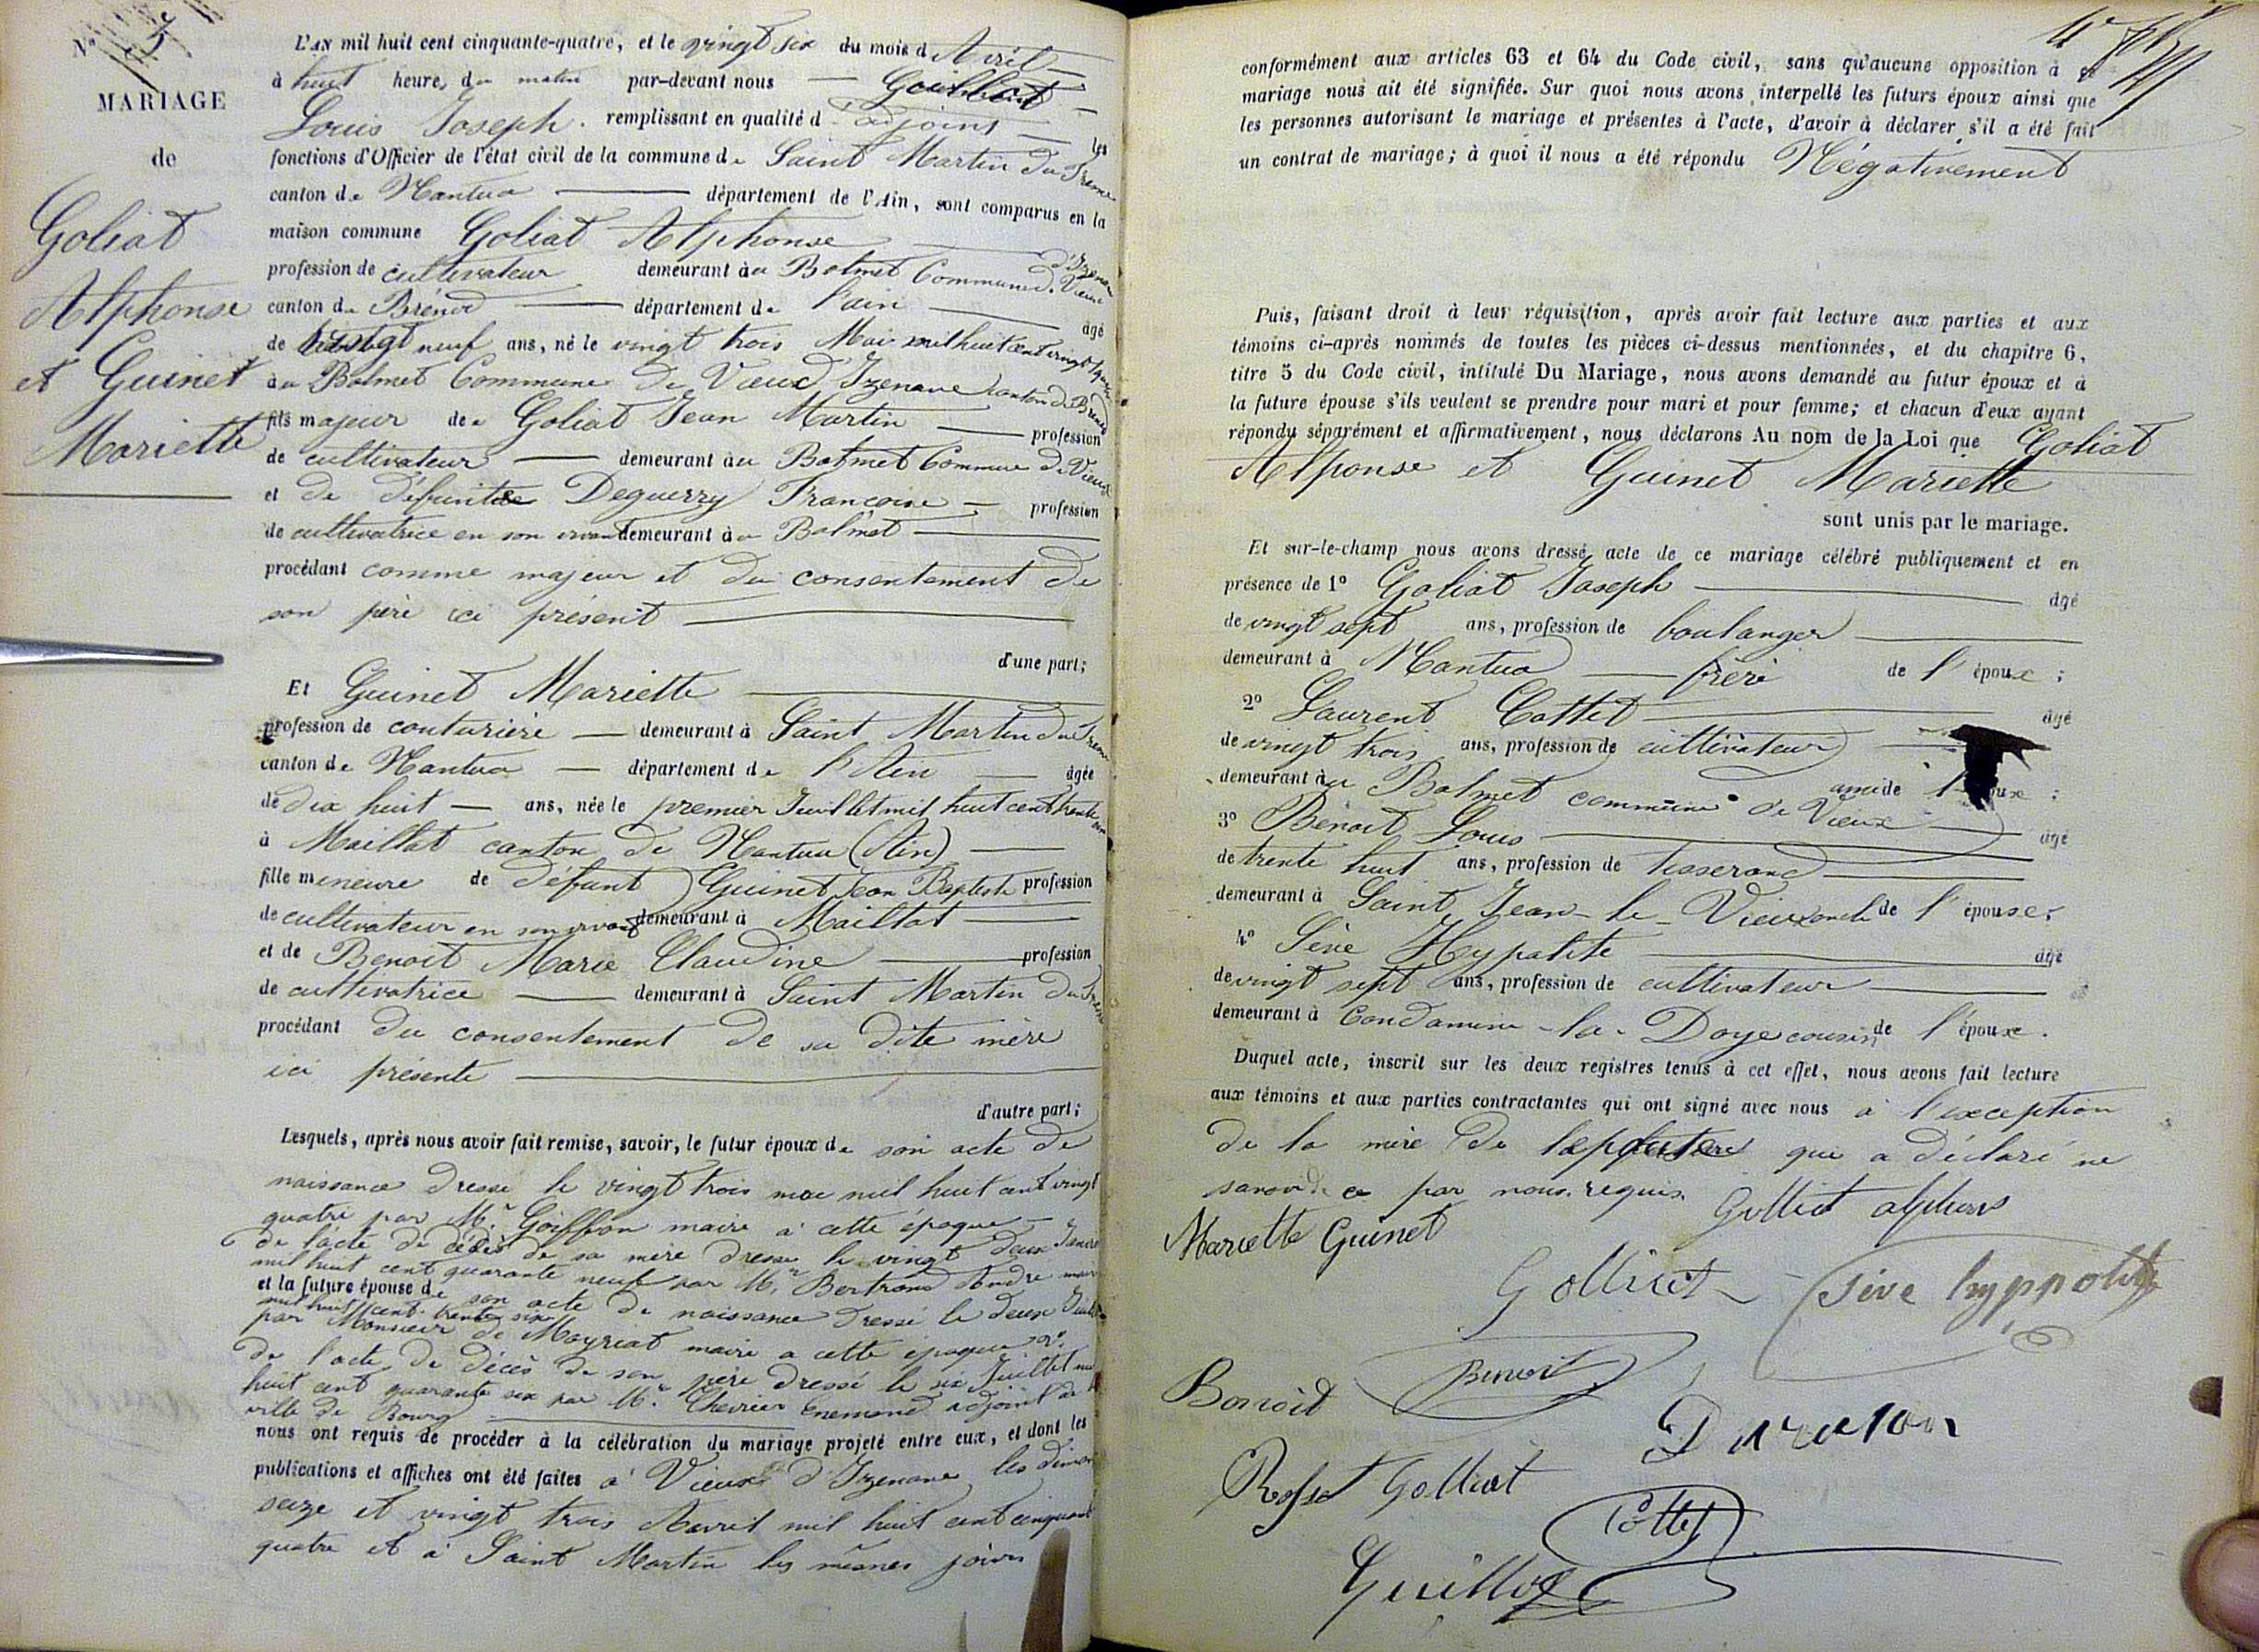 N° 5
MARIAGE
de
Goliat
Alphonse
et Guinet
Mariette
L'AN mil huit cent cinquante-quatre, et le vingt six du mois d'Avril
à huit heures du matin par-devant nous
Louis Joseph remplissant en qualité d'adjoint les
fonctions d'Officier de l'état civil de la commune de Saint Martin du Frene
canton de Nantua département de l'Ain, sont comparus en la
maison commune Goliat Alphonse
profession de cultivateur demeurant au Balmet Commune de Vieux d'Izenave
canton de Brénod département de l'ain âgé
de vingt neuf ans, né le vingt trois Mai mil huit cent vingt quatre
au Balmet Commune de Vieux d'Izenave canton de Brénod
fils majeur de Goliat Jean Martin profession
de cultivateur demeurant au Balmet Commune de Vieux
et de défunte Deguerry Francoise profession
de cultivatrice en son vivant demeurant au Balmet
procédant comme majeur et du consentement de
son père ici présent
d'une part;
Et Guinet Mariette
profession de couturière demeurant à Saint Martin du Frene
canton de Nantua département de l'Ain âgée
de dix huit ans, née le premier Juillet mil huit cent trente six
à Maillat canton de Nantua (Ain)
fille mineure de défunt Guinet Jean Baptiste profession
de cultivateur en son vivant demeurant à Maillat
et de Benoit Marie Claudine profession
de cultivatrice demeurant à Saint Martin du Frene
procédant du consentement de sa dite mère
ici présente
d'autre part;
Lesquels, après nous avoir fait remise, savoir, le futur époux de son acte de
naissance dressé le vingt trois mai mil huit cent vingt
quatre par Mr Goiffon maire à cette époque
de l'acte de décès de sa mère dressé le vingt deux Janvier
mil huit cent quarante neuf par Mr Bertrand André maire
et la future épouse de son acte de naissance dressé le deux Juillet
mil huit cent trente six
par Monsieur de Moyriat maire a cette époque 2°
de l'acte de décès de son père dressé le six Juillet mil
huit cent quarante six par Mr Chevrier Enemond adjoint de la
ville de Bourg
nous ont requis de procéder à la célébration du mariage projeté entre eux, et dont les
publications et affiches ont été faites à Vieux d'Izenave les diman
seize et vingt trois Avril mil huit cent cinquante
quatre et à Saint Martin les mêmes jours
conformément aux articles 63 et 64 du Code civil, sans qu'aucune opposition à ce
mariage nous ait été signifiée. Sur quoi nous avons interpellé les futurs époux ainsi que
les personnes autorisant le mariage et présentes à l'acte, d'avoir à déclarer s'il a été fait
un contrat de mariage; à quoi il nous a été répondu Négativement
Puis, faisant droit à leur réquisition, après avoir fait lecture aux parties et aux
témoins ci-après nommés de toutes les pièces ci-dessus mentionnées, et du chapitre 6,
titre 5 du Code civil, intitulé Du Mariage, nous avons demandé au futur époux et à
la future épouse s'ils veulent se prendre pour mari et pour femme; et chacun d'eux ayant
répondu séparément et affirmativement, nous déclarons Au nom de la Loi que Goliat
Alponse et Guinet Mariette
sont unis par le mariage.
Et sur-le-champ nous avons dressé acte de ce mariage célébré publiquement et en
présence de 1° Goliat Joseph âgé
de vingt sept ans, profession de boulanger
demeurant à Nantua frère de l'époux;
2° Laurent Cottet âgé
de vingt trois ans, profession de cultivateur
demeurant au Balmet commune de Vieux ami de l'époux;
3° Benoit Louis âgé
de trente huit ans, profession de tisserand
demeurant à Saint Jean-le-Vieux oncle de l'épouse;
4° Sève Hypolite âgé
de vingt sept ans, profession de cultivateur
demeurant à Condamine-la-Doye cousin de l'époux.
Duquel acte, inscrit sur les deux registres tenus à cet effet, nous avons fait lecture
aux témoins et aux parties contractantes qui ont signé avec nous à l'exception
de la mère de l'epouse qui a déclaré ne
savoir de ce par nous requis.
Golliat alphons
Mariette Guinet
Golliat
Sève hyppolite
Benoit
Benoit
Golliat
Cottet
Guillot